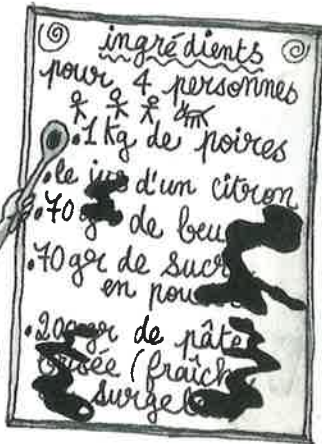 ingrédients
pour 4 personnes
•1kg de poires
•le jus d'un citron
•70 g de beu
•70gr de sucr
en pou
•200gr de pâte
(fraîch
surgel